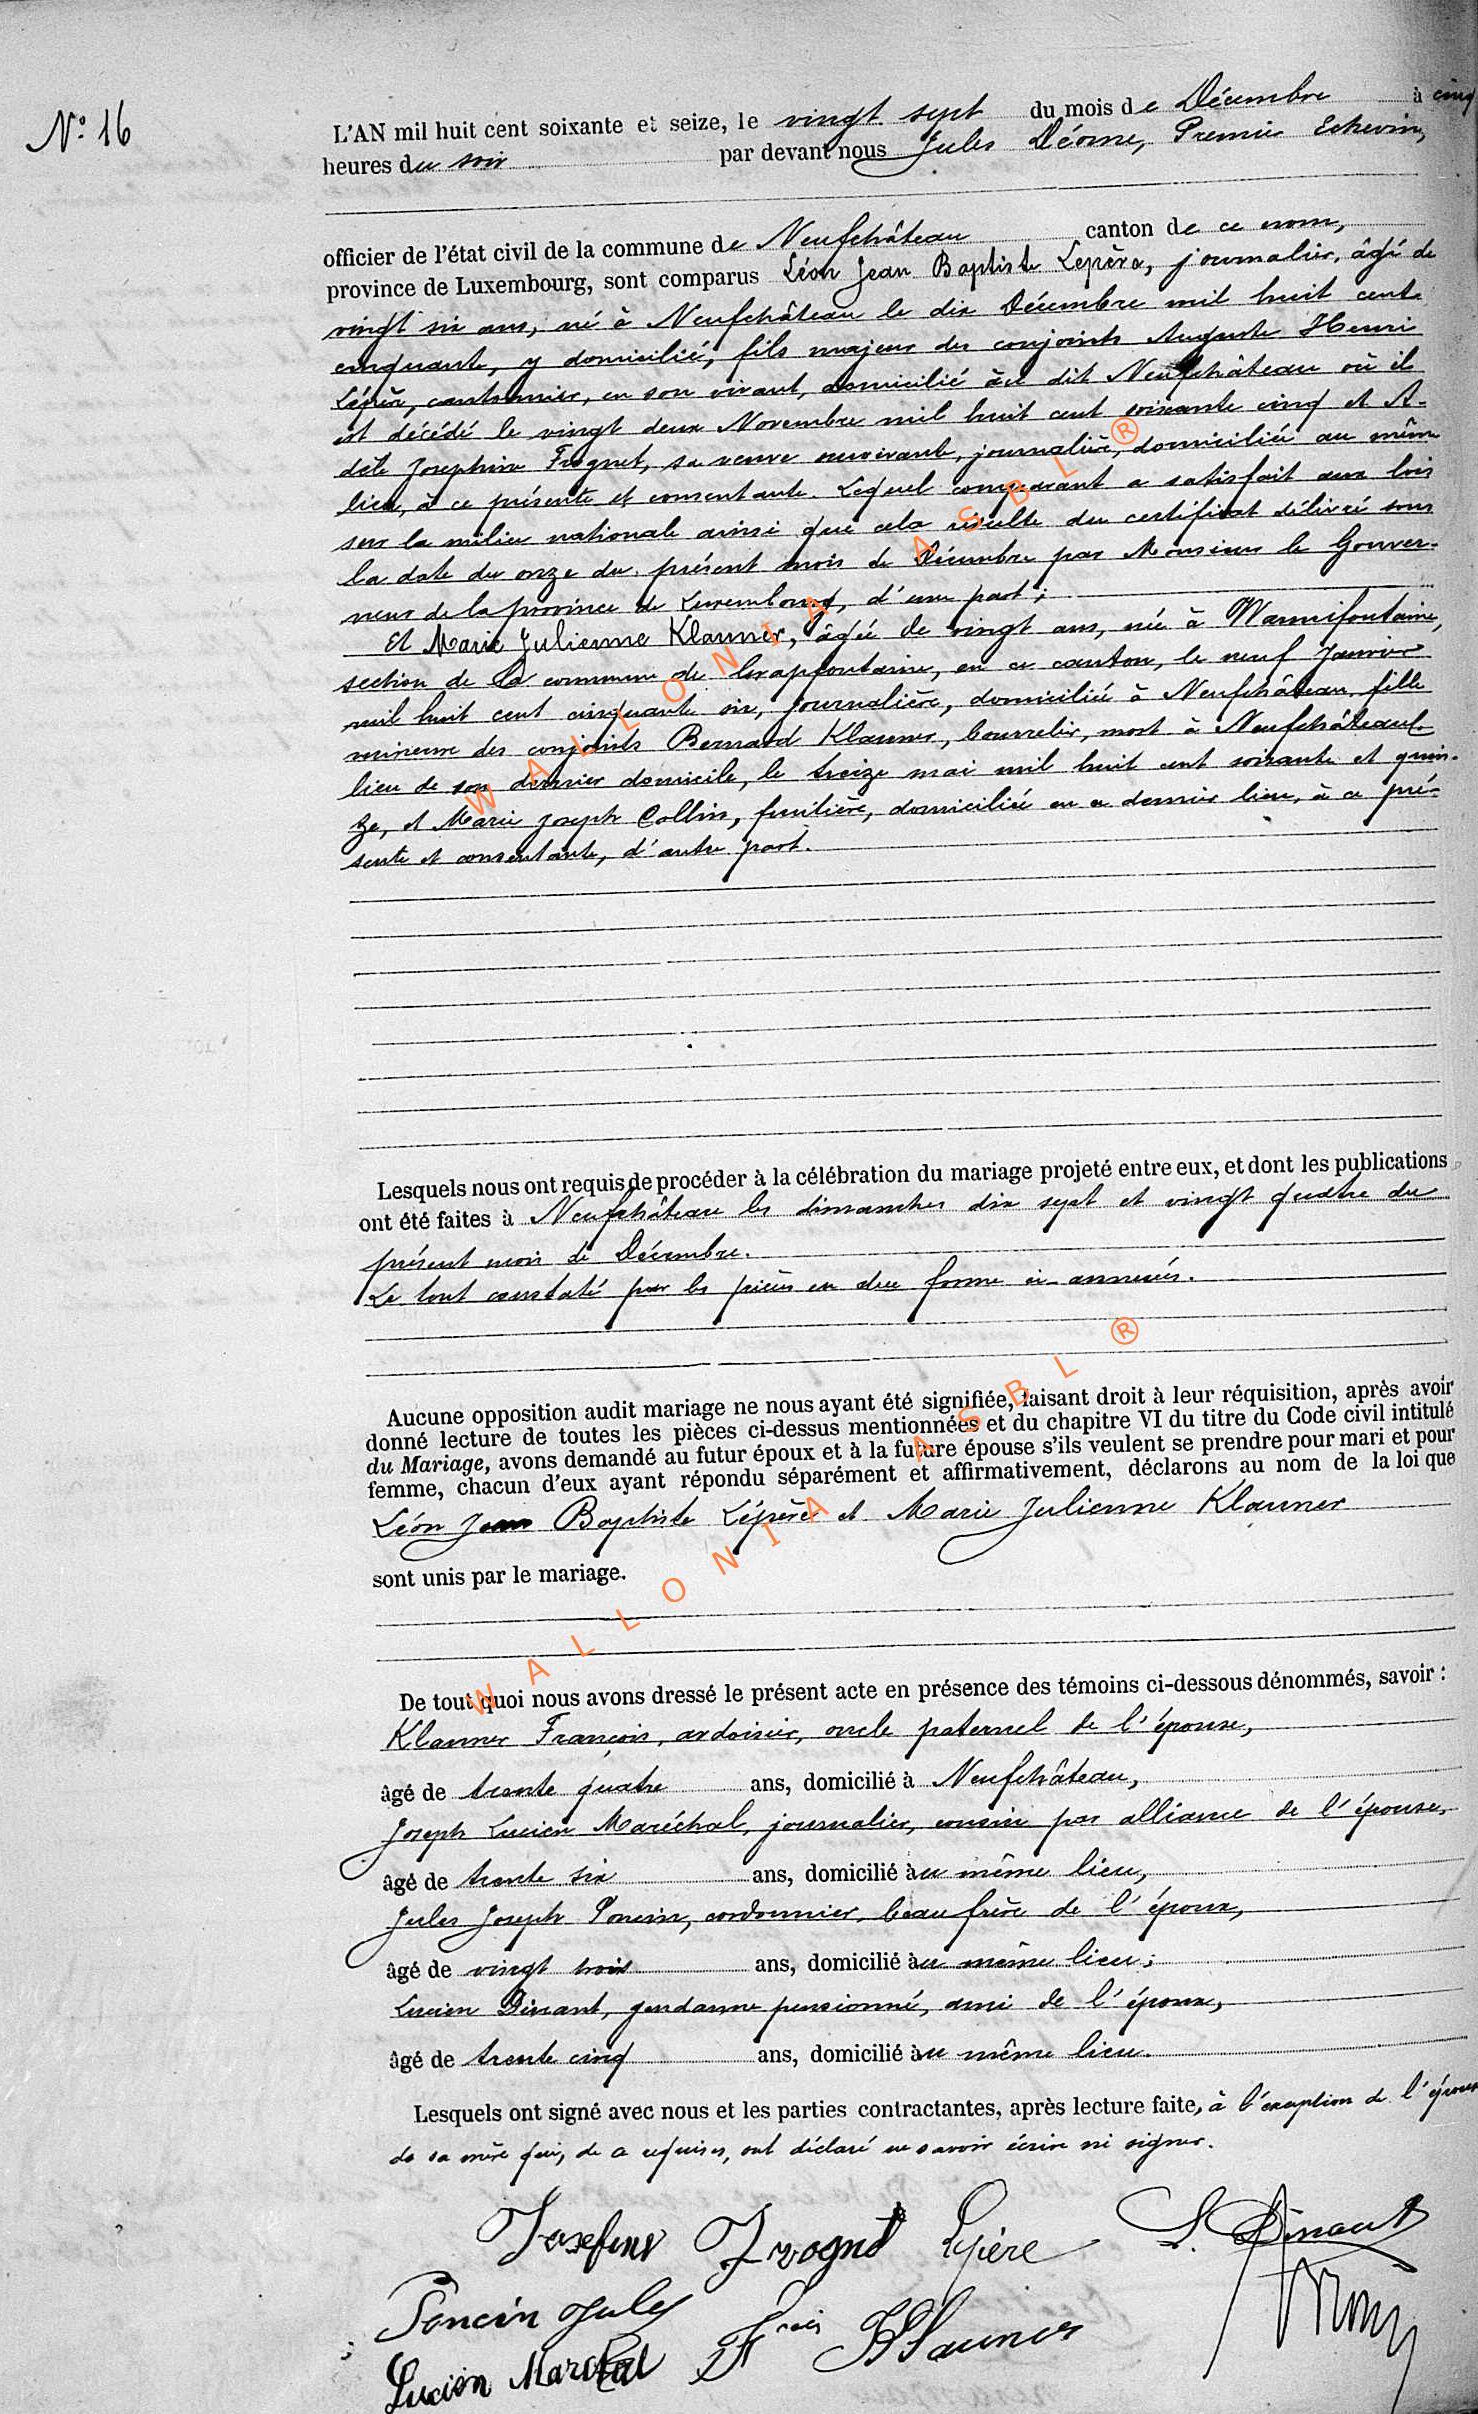 N° 16
L'AN mil huit cent soixante et seize, le vingt sept du mois de Décembre à cinq
heures du soir par devant nous Jules Déome, Premier Echevin,
officier de l'état civil de la commune de Neufchâteau canton de ce nom,
province de Luxembourg, sont comparus Léon Jean Baptiste Lepère, journalier, âgé de
vingt six ans, né à Neufchâteau le dix Décembre mil huit cent
cinquante, y domicilié, fils majeur des conjoints Auguste Henri
Lépère, cantonnier, en son vivant, domicilié au dit Neufchâteau où il
est décédé le vingt deux Novembre mil huit cent soixante cinq et A-
dèle Josephine Frognet, sa veuve survivante, journalière, domiciliée au même
lieu, à ce présente et consentante. Lequel comparant a satisfait aux lois
sur la milice nationale ainsi que cela résulte du certificat délivré sous
la date du onze du présent mois de Décembre par Monsieur le Gouver-
neur de la province de Luxembourg, d'une part;
Et Marie Julienne Klauner, âgée de vingt ans, née à Warmifontaine,
section de la commune de Grapfontaine, en ce canton, le neuf Janvier
mil huit cent cinquante six, journalière, domiciliée à Neufchâteau, fille
mineure des conjoints Bernard Klauner, bourrelier, mort à Neufchâteau
lieu de son dernier domicile, le treize mai mil huit cent soixante et quin-
ze, et Marie Joseph Collin, fruitière, domiciliée en ce dernier lieu, à ce pré-
sente et consentante, d'autre part.
Lesquels nous ont requis de procéder à la célébration du mariage projeté entre eux, et dont les publications
ont été faites à Neufchâteau les dimanches dix sept et vingt quatre du
présent mois de Décembre.
Le tout constaté par les pièces en due forme ci-annexés.
Aucune opposition audit mariage ne nous ayant été signifiée, faisant droit à leur réquisition, après avoir
donné lecture de toutes les pièces ci-dessus mentionnées et du chapitre VI du titre du Code civil intitulé
du Mariage, avons demandé au futur époux et à la future épouse s'ils veulent se prendre pour mari et pour
femme, chacun d'eux ayant répondu séparément et affirmativement, déclarons au nom de la loi que
Léon Jean Baptiste Lépère et Marie Julienne Klauner
sont unis par le mariage.
De tout quoi nous avons dressé le présent acte en présence des témoins ci-dessous dénommés, savoir :
Klauner François, ardoisier, oncle paternel de l'épouse,
âgé de trente quatre ans, domicilié à Neufchâteau,
Joseph Lucien Maréchal, journalier, cousin par alliance de l'épouse,
âgé de trente six ans, domicilié au même lieu,
Jules Joseph Poncin, cordonnier, beau frère de l'époux,
âgé de vingt trois ans, domicilié au même lieu;
Lucien Dinant, gendarme pensionné, ami de l'époux,
âgé de trente cinq ans, domicilié au même lieu.
Lesquels ont signé avec nous et les parties contractantes, après lecture faite, à l'exception de l'épouse
de sa mère qui, de ce requises, ont déclaré ne savoir écrire ni signer.
Josefine Frognet Lepère L. Dinant
Poncin Jules Fçois Klauner
Lucien Marchal
WALLONIA ASBL ®
WALLONIA ASBL ®